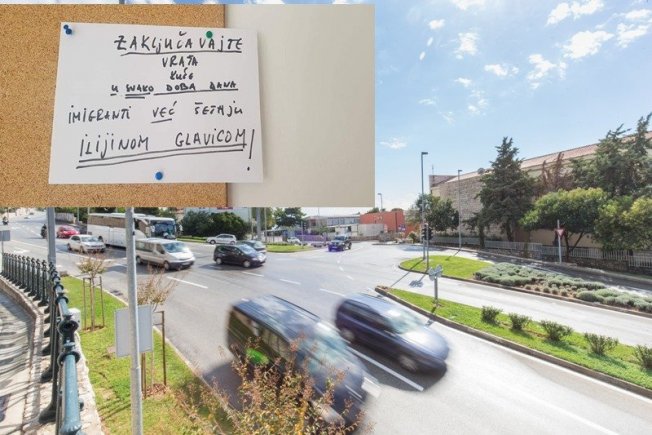 ZAKLJUČAVAJTE
VRATA
KUĆE
U SVAKO DOBA DANA
IMIGRANTI VEĆ ŠETAJU
ILIJINOM GLAVICOM!